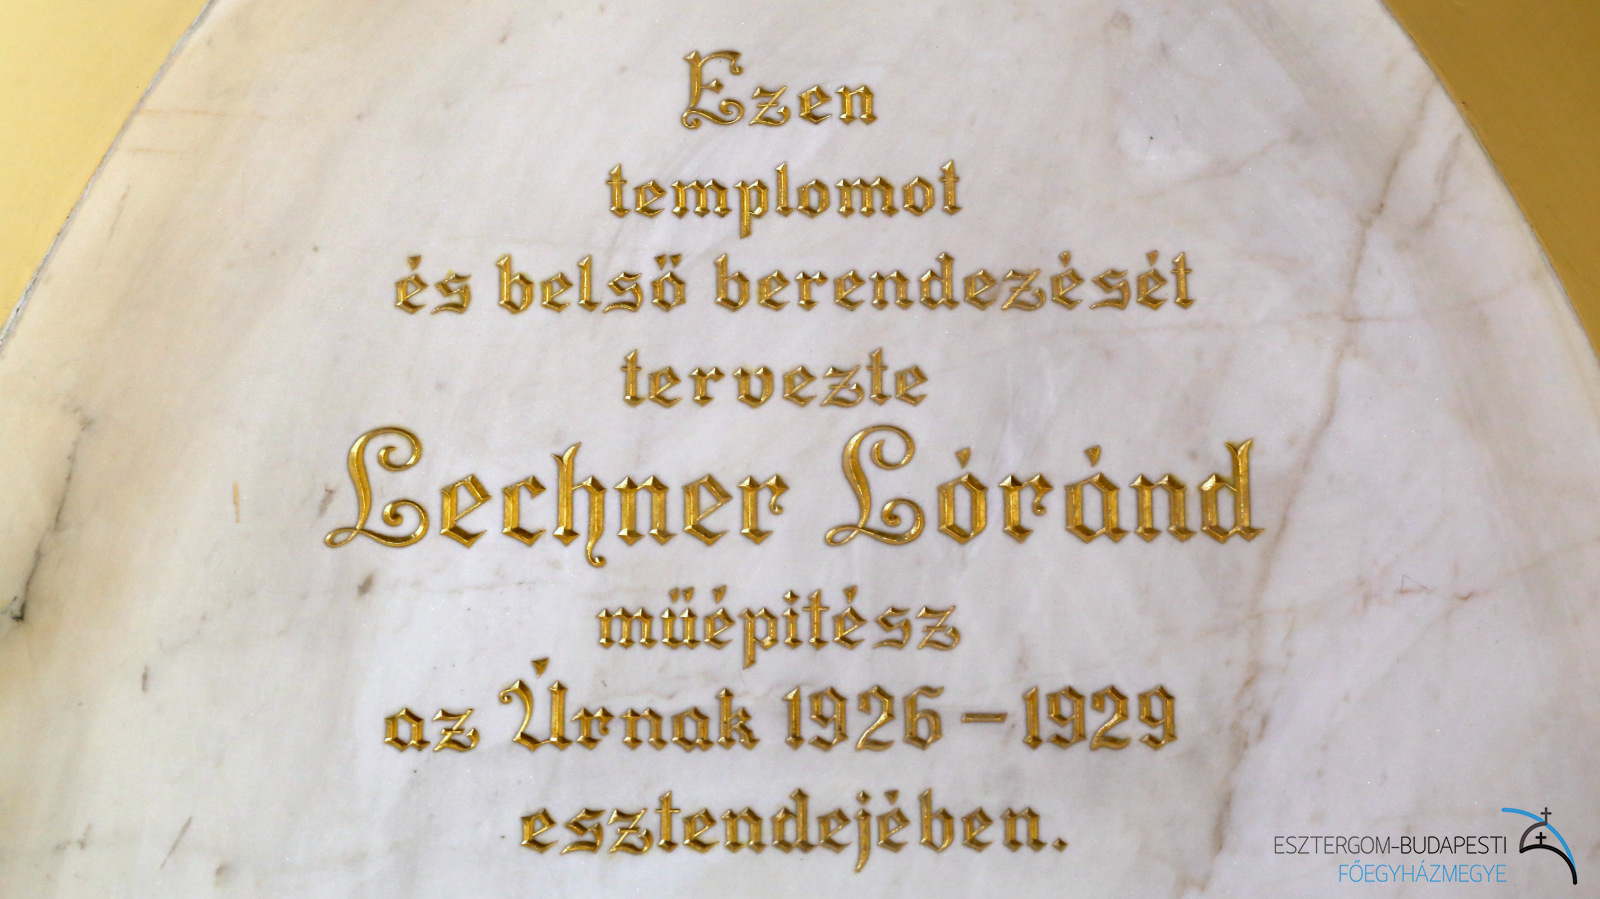 Ezen
templomot
és belsö berendezését
tervezte
Lechner Lóránd
müépitész
az Úrnak 1926-1929
esztendejében.
ESZTERGOM-BUDAPESTI
FŐEGYHÁZMEGYE